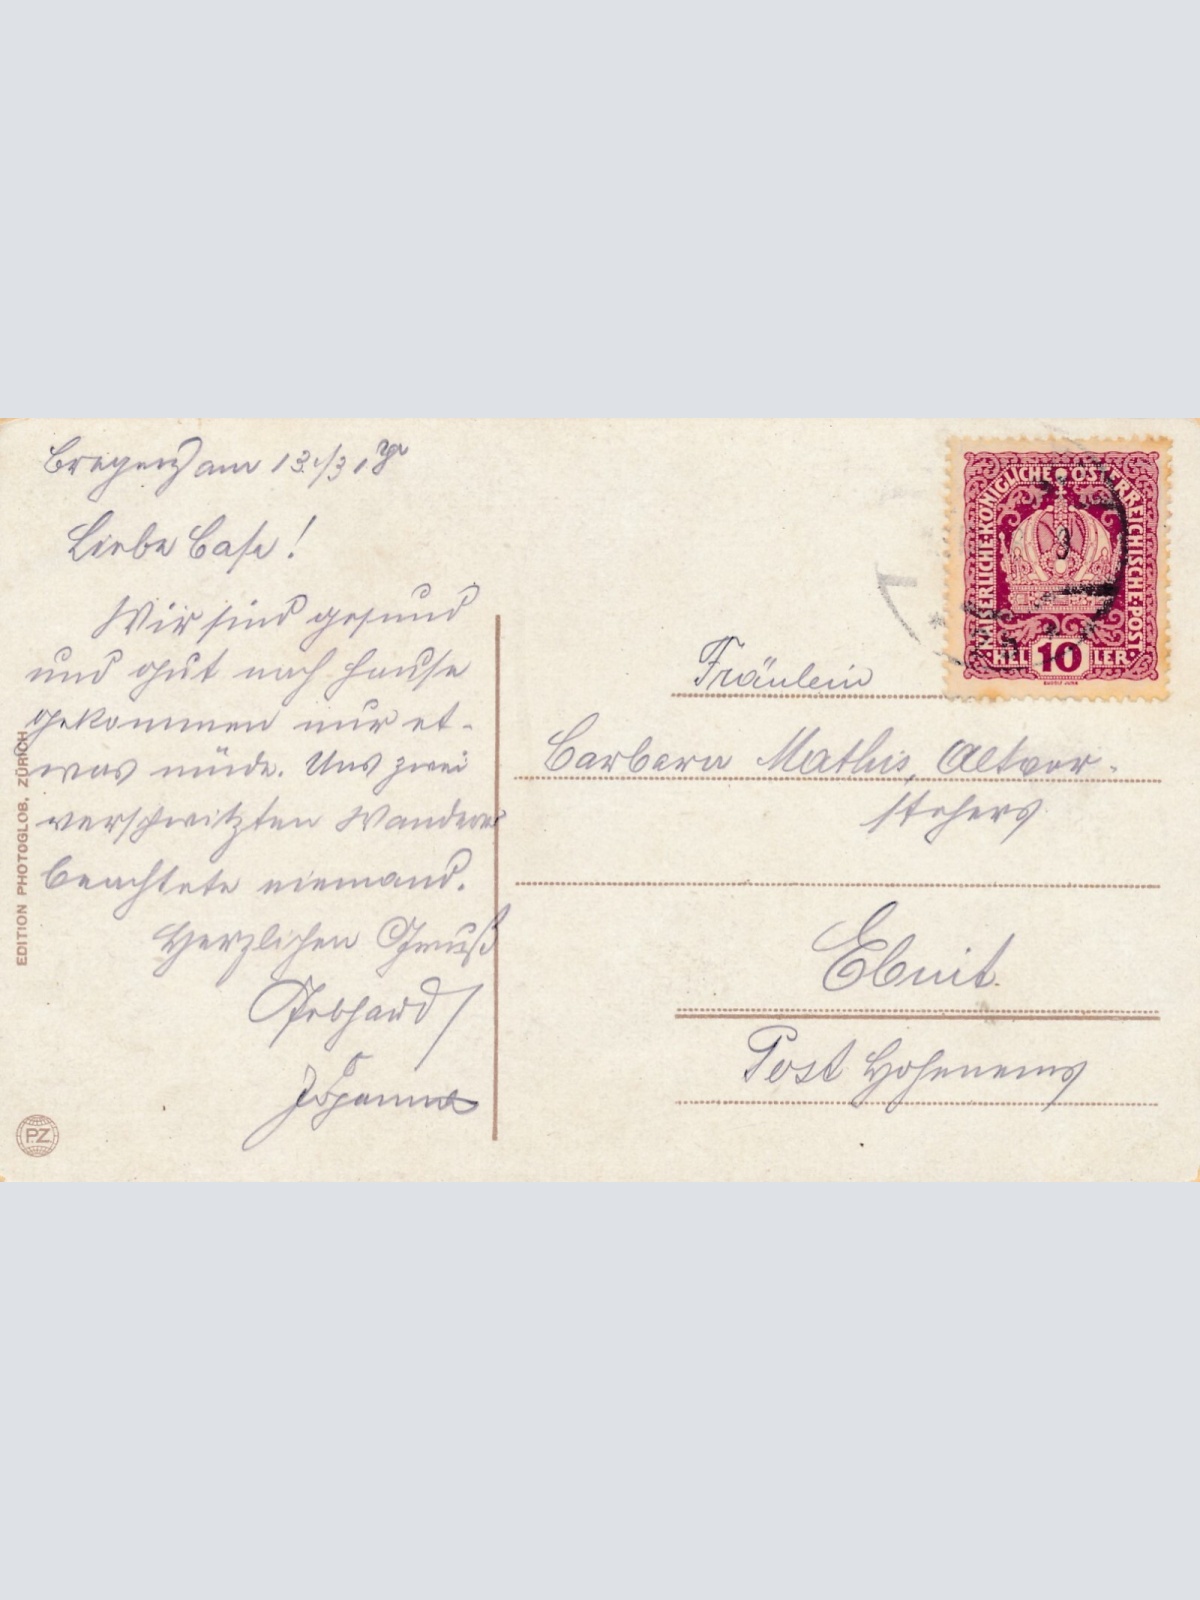 Bregenz am 13./3. 18
Liebe Base!
Wir sind gesund
und gut nach Hause
gekommen nur et-
was müde. Uns zwei
verschwitzten Wanderer
beachtete niemand.
Herzlichen Gruß
Gebhard /
Johanna
EDITION PHOTOGLOB. ZÜRICH
PZ
KAISERLICHE·KÖNIGLICHE ÖSTERREICHISCHE·POST
HEL 10 LER
Fräulein
Barbara Mathis, Altvor-
stehers
Ebnit
Post Hohenems